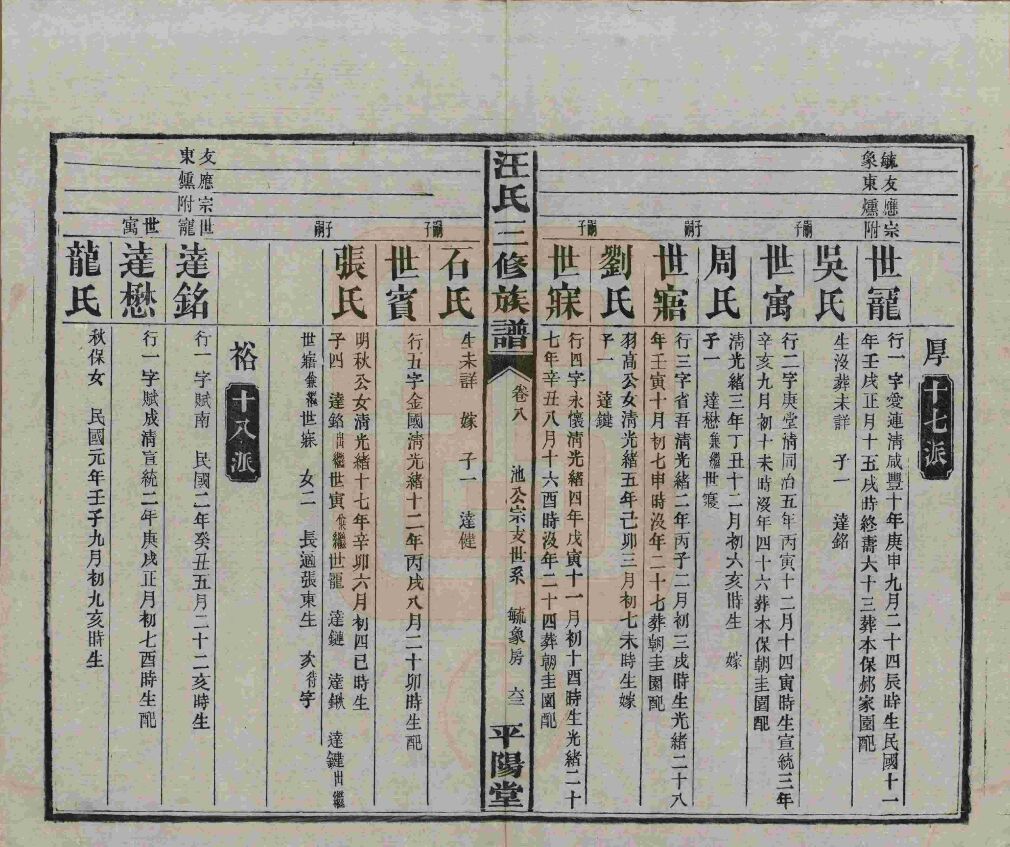 毓友應宗
象東爋附
厚 十七派
世寵 行一字愛蓮清咸豐十年庚申九月二十四辰時生民國十一
年壬戌正月十五戌時終壽六十三葬本保郝家園配
吳氏 生沒葬未詳 子一 達銘
嗣子
世寓 行二字庚堂清同治五年丙寅十二月十四寅時生宣統三年
辛亥九月初十未時沒年四十六葬本保朝圭園配
周氏 清光緒三年丁丑十二月初六亥時生 嫁
子一 達懋兼繼世寵
嗣子
世寤 行三字省吾清光緒二年丙子二月初三戌時生光緒二十八
年壬寅十月初七申時沒年二十七葬朝圭園配
劉氏 羽高公女清光緒五年己卯三月初七未時生嫁
子一 達鍵
嗣子
世寐 行四字永懷清光緒四年戊寅十一月初十酉時生光緒二十
七年辛丑八月十六酉時沒年二十四葬朝圭園配
汪氏三修族譜 卷八 池公宗支世系 毓象房 六三 平陽堂
石氏 生未詳 嫁 子一 達健
嗣子
世賓 行五字金國清光緒十二年丙戌八月二十卯時生配
張氏 明秋公女清光緒十七年辛卯六月初四巳時生
子四 達銘出繼世寅兼繼世寵 達鏈 達鍬 達鍵出繼
世寤兼繼世寐 女二 長適張東生 次待字
嗣子
裕 十八派
友應宗世
東爋附寵
達銘 行一字賦南 民國二年癸丑五月二十二亥時生
世寓
達懋 行一字賦成清宣統二年庚戌正月初七酉時生配
龍氏 秋保女 民國元年壬子九月初九亥時生